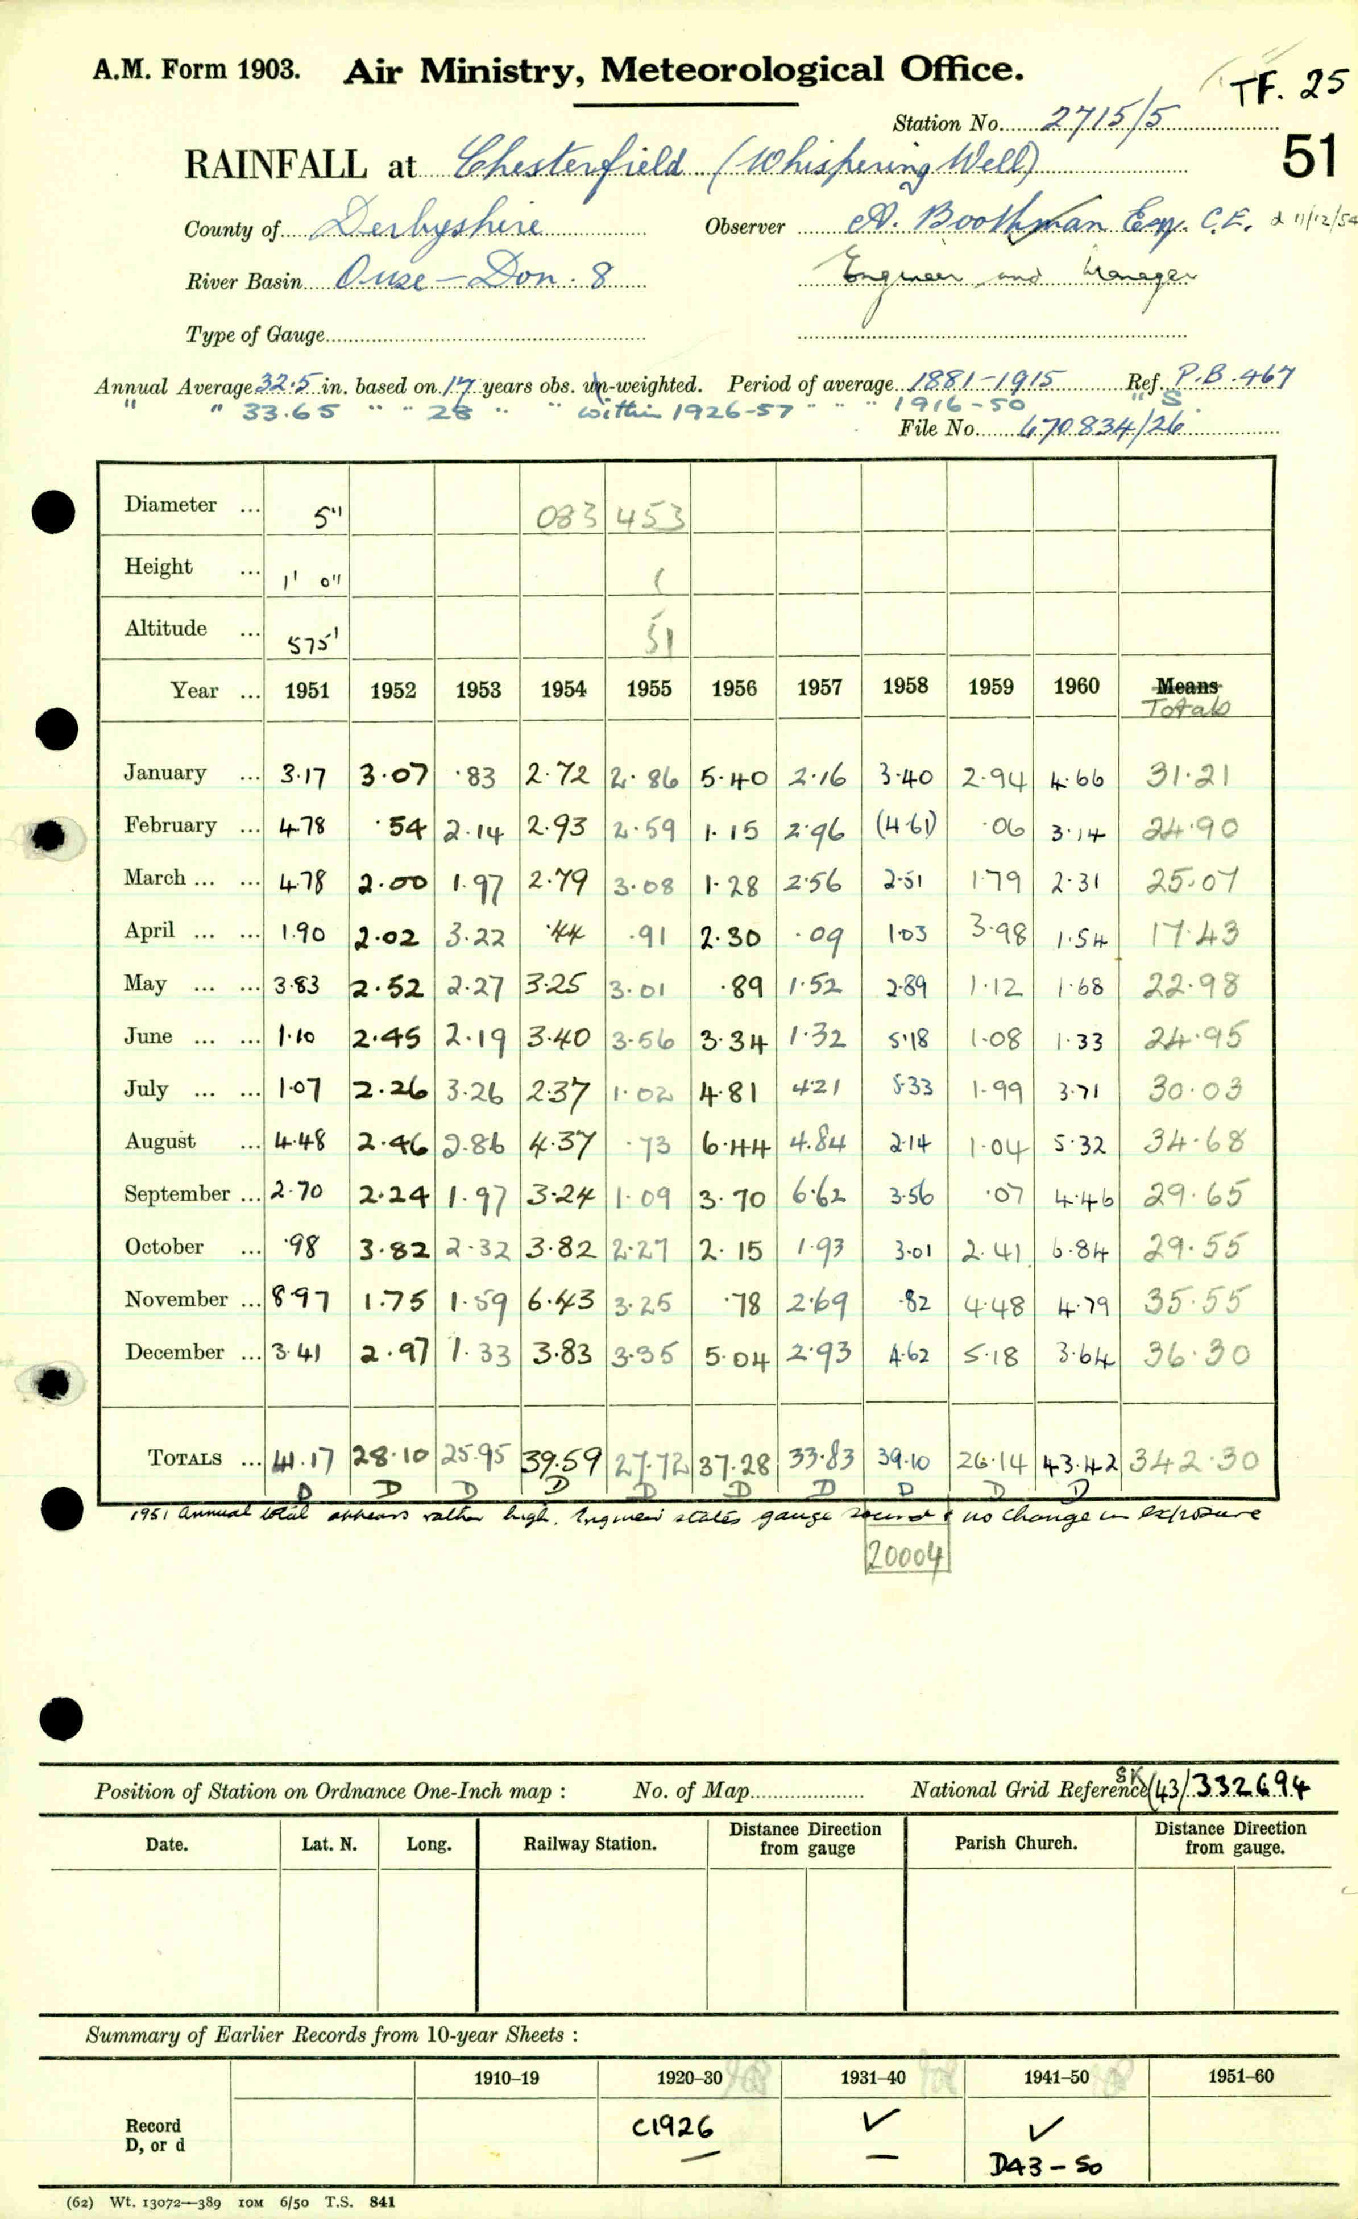 A.M. Form 1903. Air Ministry, Meteorological Office. TF. 25
Station No. 2715/5
51
RAINFALL at Chesterfield (Whispering Well)
County of Derbyshire Observer A. Boothman Esq. C.E. d 11/12/54
River Basin Ouse - Don. 8 Engineer and Manager
Type of Gauge
Annual Average 32.5 in. based on 17 years obs. un-weighted. Period of average 1881-1915 Ref. P.B. 467
" " 33.65 " " 28 " " within 1926-57 " " " 1916-50 " S.
File No. 670834/26
Diameter ... 5" 083 453
Height ... 1' 0" (
Altitude ... 575' 51
Year ... 1951 1952 1953 1954 1955 1956 1957 1958 1959 1960 Means
Totals
January ... 3.17 3.07 .83 2.72 2.86 5.40 2.16 3.40 2.94 4.66 31.21
February ... 4.78 .54 2.14 2.93 2.59 1.15 2.96 (4.61) .06 3.14 24.90
March ... ... 4.78 2.00 1.97 2.79 3.08 1.28 2.56 2.51 1.79 2.31 25.07
April ... ... 1.90 2.02 3.22 .44 .91 2.30 .09 1.03 3.98 1.54 17.43
May ... ... 3.83 2.52 2.27 3.25 3.01 .89 1.52 2.89 1.12 1.68 22.98
June ... ... 1.10 2.45 2.19 3.40 3.56 3.34 1.32 5.18 1.08 1.33 24.95
July ... ... 1.07 2.26 3.26 2.37 1.02 4.81 4.21 5.33 1.99 3.71 30.03
August ... 4.48 2.46 2.86 4.37 .73 6.44 4.84 2.14 1.04 5.32 34.68
September ... 2.70 2.24 1.97 3.24 1.09 3.70 6.62 3.56 .07 4.46 29.65
October ... .98 3.82 2.32 3.82 2.27 2.15 1.93 3.01 2.41 6.84 29.55
November ... 8.97 1.75 1.59 6.43 3.25 .78 2.69 .82 4.48 4.79 35.55
December ... 3.41 2.97 1.33 3.83 3.35 5.04 2.93 4.62 5.18 3.64 36.30
TOTALS ... 41.17 28.10 25.95 39.59 27.72 37.28 33.83 39.10 26.14 43.42 342.30
D D D D D D D D D D
1951 Annual total appears rather high. Engineer states gauge sound & no change in exposure
20004
Position of Station on Ordnance One-Inch map : No. of Map National Grid Reference SK (43) 332694
Date. Lat. N. Long. Railway Station. Distance Direction from gauge Parish Church. Distance Direction from gauge.
Summary of Earlier Records from 10-year Sheets :
1910–19 1920–30 1931–40 1941–50 1951–60
Record C1926 ✓ ✓
D, or d — — D43-50
(62) Wt. 13072—389 10M 6/50 T.S. 841